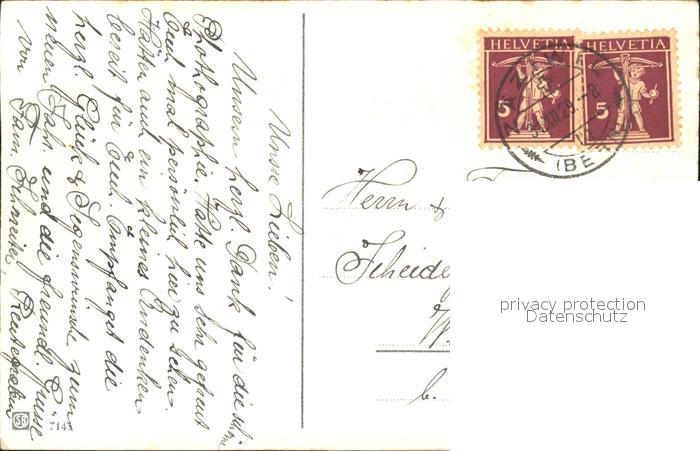 Unsre Lieben!
Unsern herzl. Dank für die schöne
Photographie. Hätte uns sehr gefreut
Euch mal persönlich hier zu sehen.
Hätten auch ein kleines Andenken
bereit für Euch. Empfanget die
herzl. Glück & Segenswünsche zum
neuen Jahr und die freundl. Grüsse
von Fam. Schreiter
7143
HELVETIA HELVETIA
5 5
29.-8
(BE
Herrn &
W
b.
privacy protection
Datenschutz